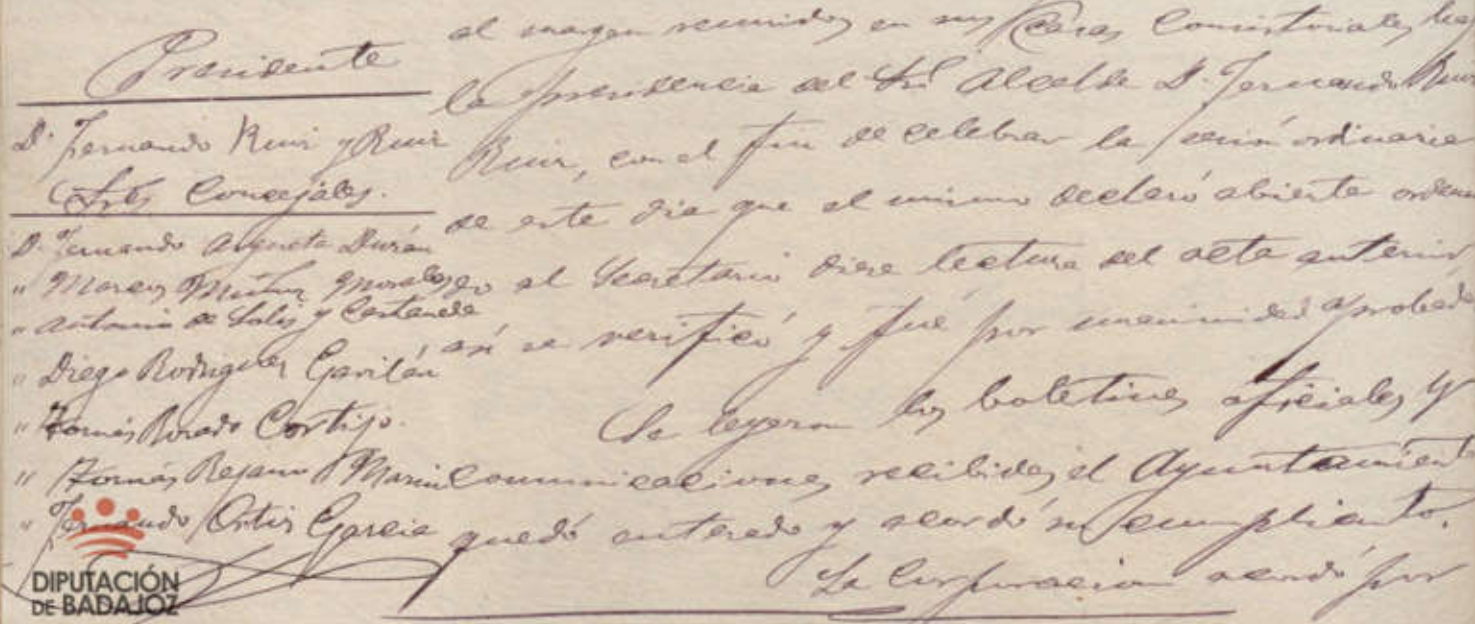 Presidente
D. Fernando Ruiz y Ruiz
Sres Concejales.
D. Fernando Argueta Durán
" Marcos Muñoz Morales
" Antonio de Solis y Castañeda
" Diego Rodriguez Gavilán
" Tomás Rosado Cortijo.
" Tomás Bejano Marin
" Fernando Ortiz Garcia
al margen reunidos en sus Casas Consistoriales bajo
la presidencia del Sr Alcalde D. Fernando Ruiz
Ruiz, con el fin de celebrar la sesión ordinaria
de este dia que el mismo declaró abierta orden
do al Secretario diese lectura del acta anterior
asi se verificó y fué por unanimidad aprobada
Se leyeron los boletines oficiales y
comunicaciones recibidas, el Ayuntamiento
quedó enterado y acordó su cumplianto.
La Corporacion acordó por
DIPUTACIÓN
DE BADAJOZ